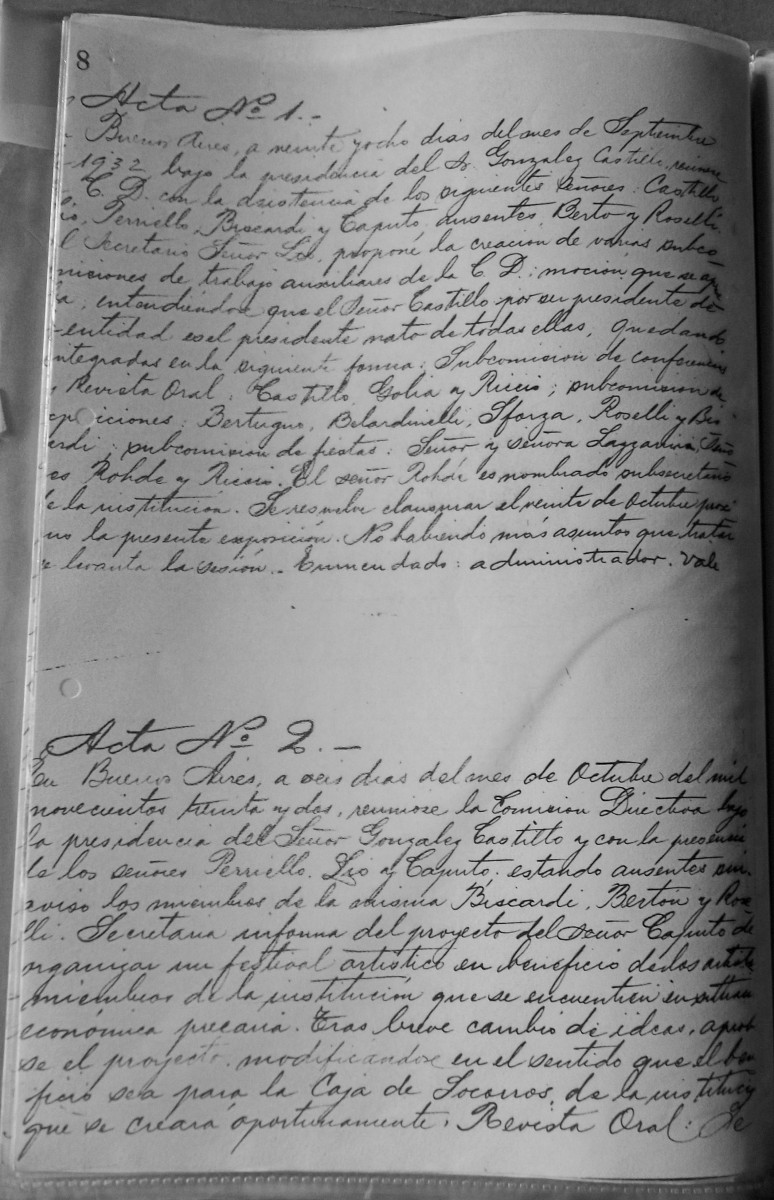 8
Acta Nº 1.-
Buenos Aires, a veinte y ocho dias del mes de Septiembre
1932, bajo la presidencia del Sr. Gonzalez Castillo, reunese
C. D. con la asistencia de los siguientes señores: Castillo
io, Perriello, Biscardi y Caputo, ausentes, Berto y Roselli.
l Secretario Señor Lio, propone la creacion de varias subco-
misiones de trabajo auxiliares de la C. D.; moción que se apru
ba; entendiendose que el Señor Castillo por ser presidente de
entidad es el presidente nato de todas ellas, quedando
integradas en la siguiente forma: Subcomision de conferencias
y Revista Oral: Castillo, Golia y Riccio; subcomision de
posiciones: Bertugno, Belardinelli, Sforza, Roselli y Bis
cardi; subcomision de fiestas: Señor y señora Lazzarini, Seño
es Rohde y Riccio. El señor Rohde es nombrado subsecretario
de la institución. Se resuelve clausurar el veinte de Octubre proxi
mo la presente exposición. No habiendo más asuntos que tratar
se levanta la sesión.- Enmendado: administrador. Vale
Acta Nº 2.-
En Buenos Aires, a seis dias del mes de Octubre del mil
novecientos treinta y dos, reuniose la Comision Directiva bajo
la presidencia del Señor Gonzalez Castillo y con la presencia
de los señores Perriello, Lio y Caputo, estando ausentes sin
aviso los miembros de la misma Biscardi, Berton y Rose
lli. Secretaria informa del proyecto del señor Caputo de
organizar un festival artístico en beneficio de los artistas
miembros de la institución que se encuentren en situac
económica precaria. Tras breve cambio de ideas, aprob
se el proyecto, modificandose en el sentido que el ben
ficio sea para la Caja de Socorros, de la instituci
que se creará oportunamente. Revista Oral: Se